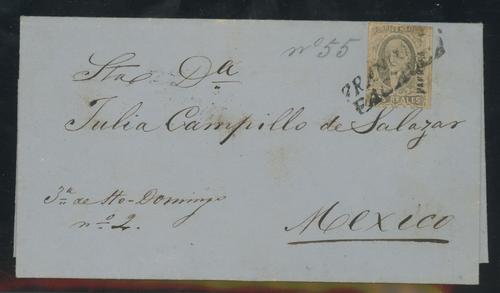 nº 55
Sta Da
Julia Campillo de Salazar
3a de Sto Domingo
nº 2.
Mexico
FRANCO
REALES